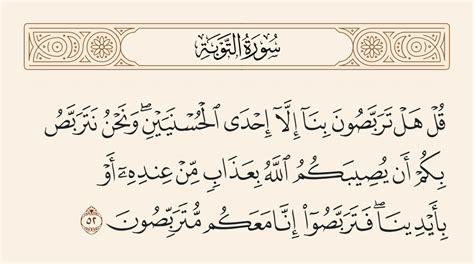 سُورَةُ التَّوۡبَةِ
قُلۡ هَلۡ تَرَبَّصُونَ بِنَآ إِلَّآ إِحۡدَى ٱلۡحُسۡنَيَيۡنِۖ وَنَحۡنُ نَتَرَبَّصُ
بِكُمۡ أَن يُصِيبَكُمُ ٱللَّهُ بِعَذَابٖ مِّنۡ عِندِهِۦٓ أَوۡ
بِأَيۡدِينَاۖ فَتَرَبَّصُوٓاْ إِنَّا مَعَكُم مُّتَرَبِّصُونَ ٥٢